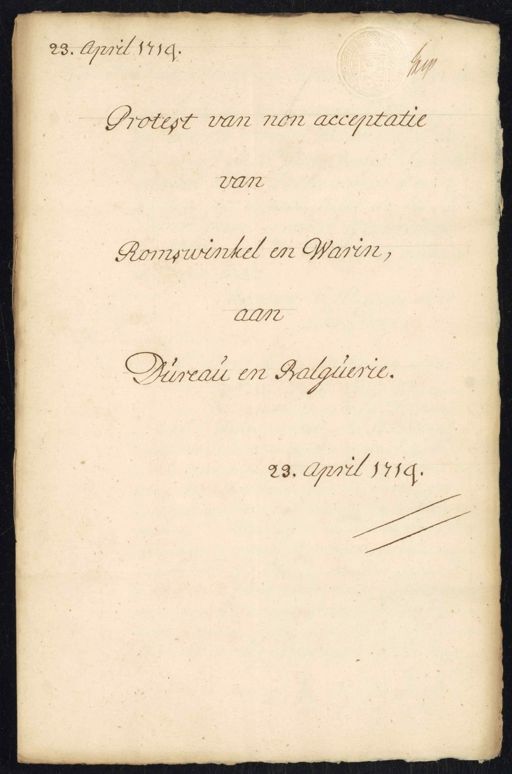 23. April 1714.
Protest van non acceptatie
van
Romswinkel en Warin,
aan
Dúreaú en Balgúerie.
23. April 1714.